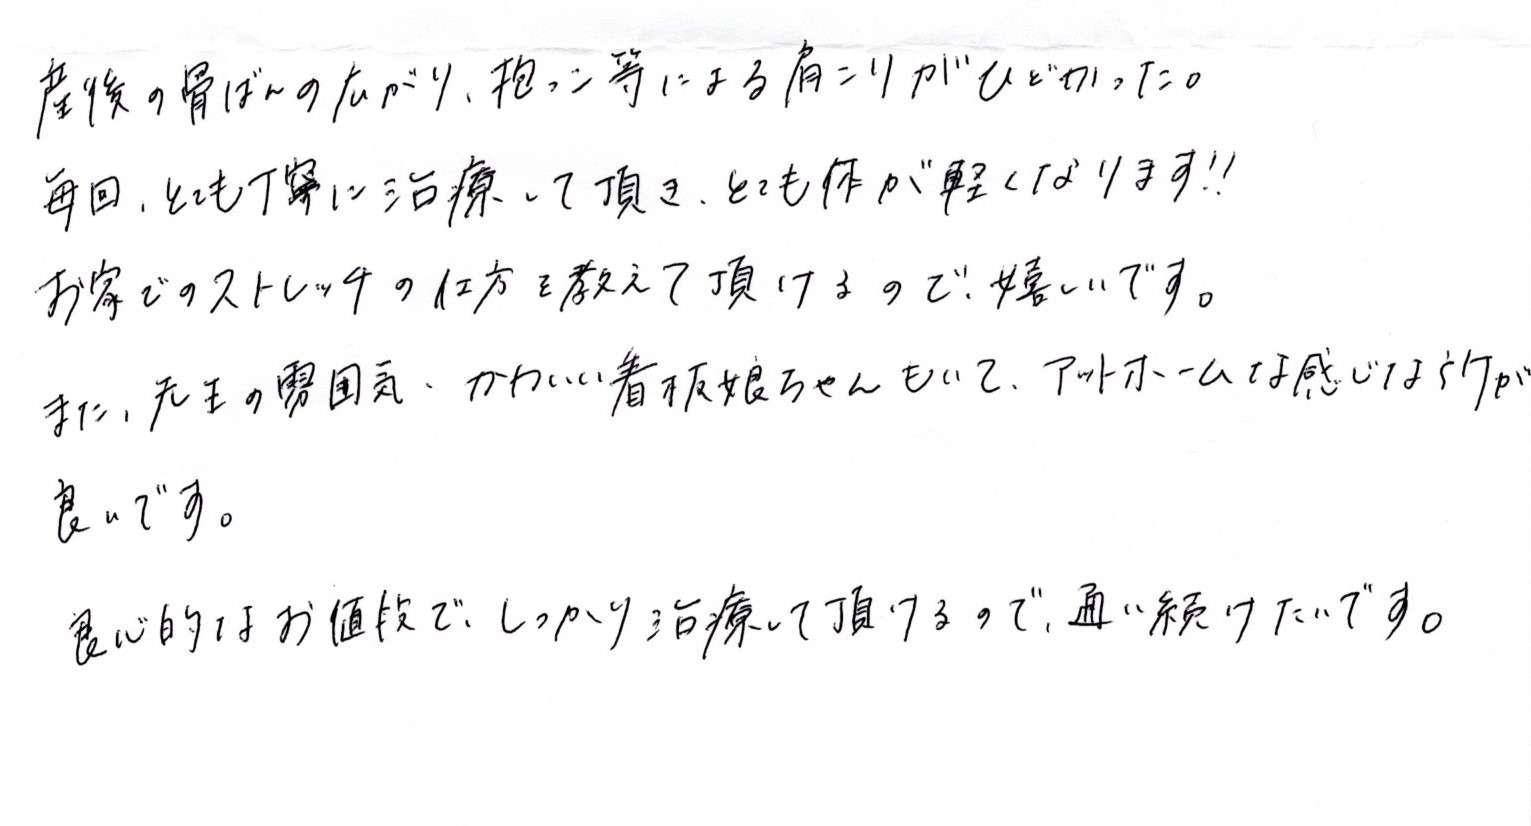 産後の骨ばんの広がり、抱っこ等による肩こりがひどかった。
毎回、とても丁寧に治療して頂き、とても体が軽くなります!!
お家でのストレッチの仕方を教えて頂けるので、嬉しいです。
また、先生の雰囲気、かわいい看板娘ちゃんもいて、アットホームな感じなが
良いです。
良心的なお値段で、しっかり治療して頂けるので、通い続けたいです。